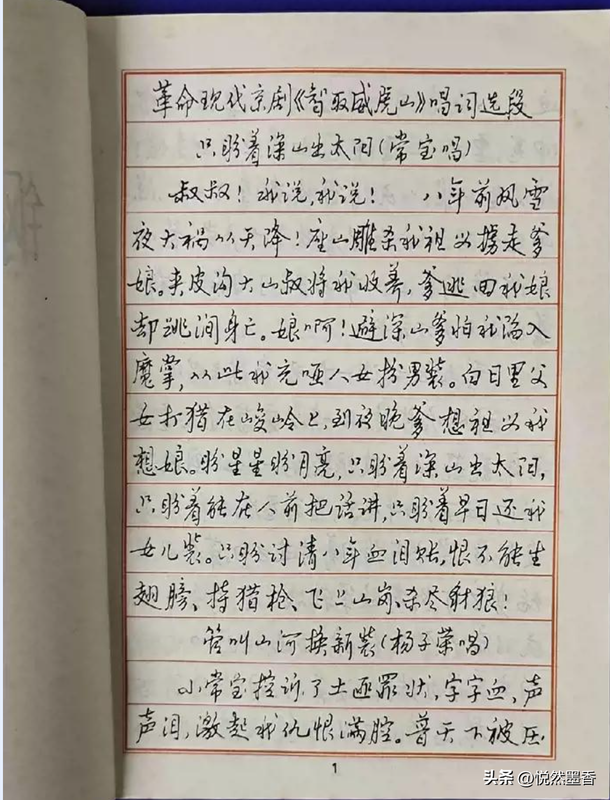 革命现代京剧《智取威虎山》唱词选段
只盼着深山出太阳(常宝唱)
叔叔！我说,我说！　八年前风雪
夜大祸从天降！座山雕杀我祖父掳走爹
娘。夹皮沟大山叔将我收养,爹逃回我娘
却跳涧身亡。娘啊！避深山爹怕我陷入
魔掌,从此我充哑人女扮男装。白日里父
女打猎在峻岭上,到夜晚爹想祖父我
想娘。盼星星盼月亮,只盼着深山出太阳,
只盼着能在人前把话讲,只盼着早日还我
女儿装。只盼讨清八年血泪账,恨不能生
翅膀、持猎枪、飞上山岗、杀尽豺狼！
管叫山河换新装(杨子荣唱)
小常宝控诉了土匪罪状,字字血,声
声泪,激起我仇恨满腔。普天下被压
1
头条 @悦然墨香